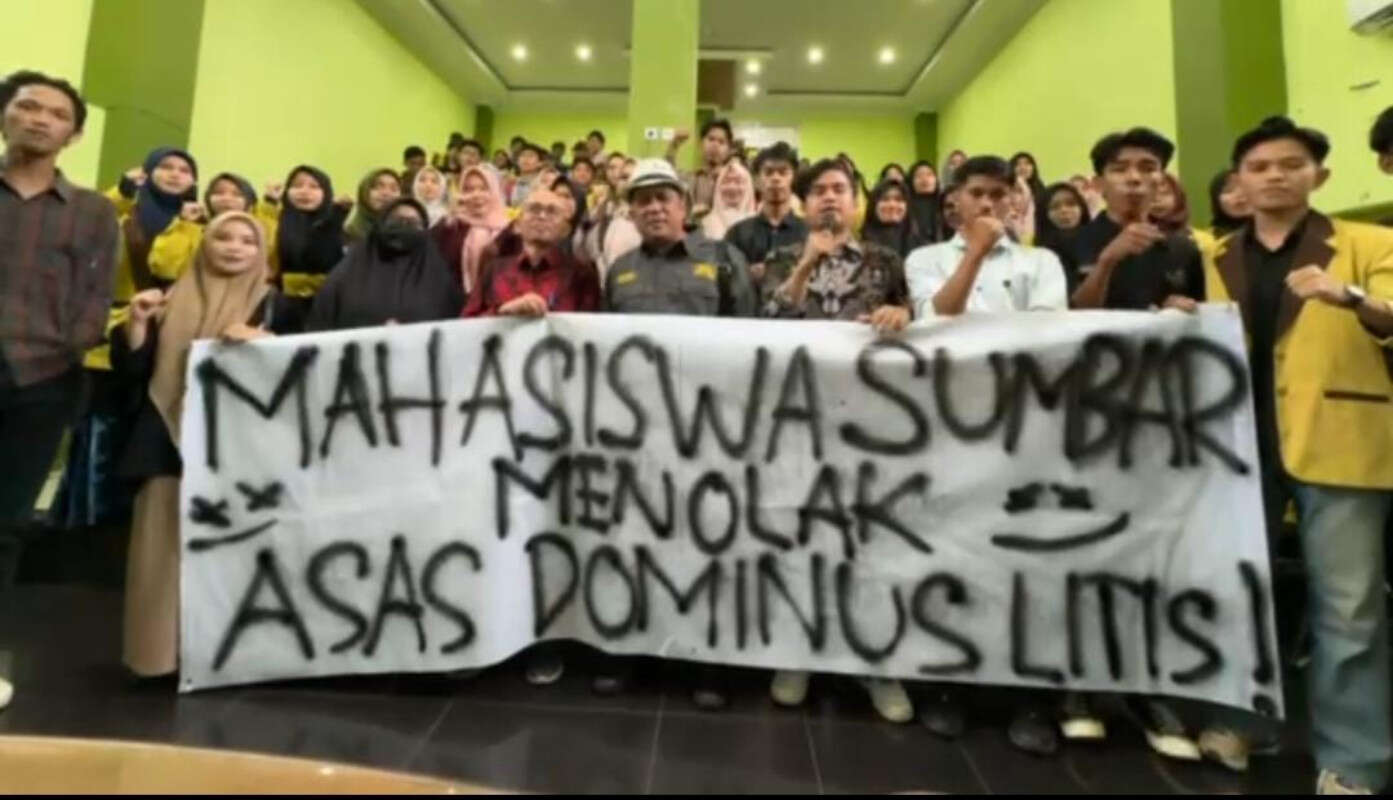 MAHASISWA SUMBAR
MENOLAK
ASAS DOMINUS LITIS!